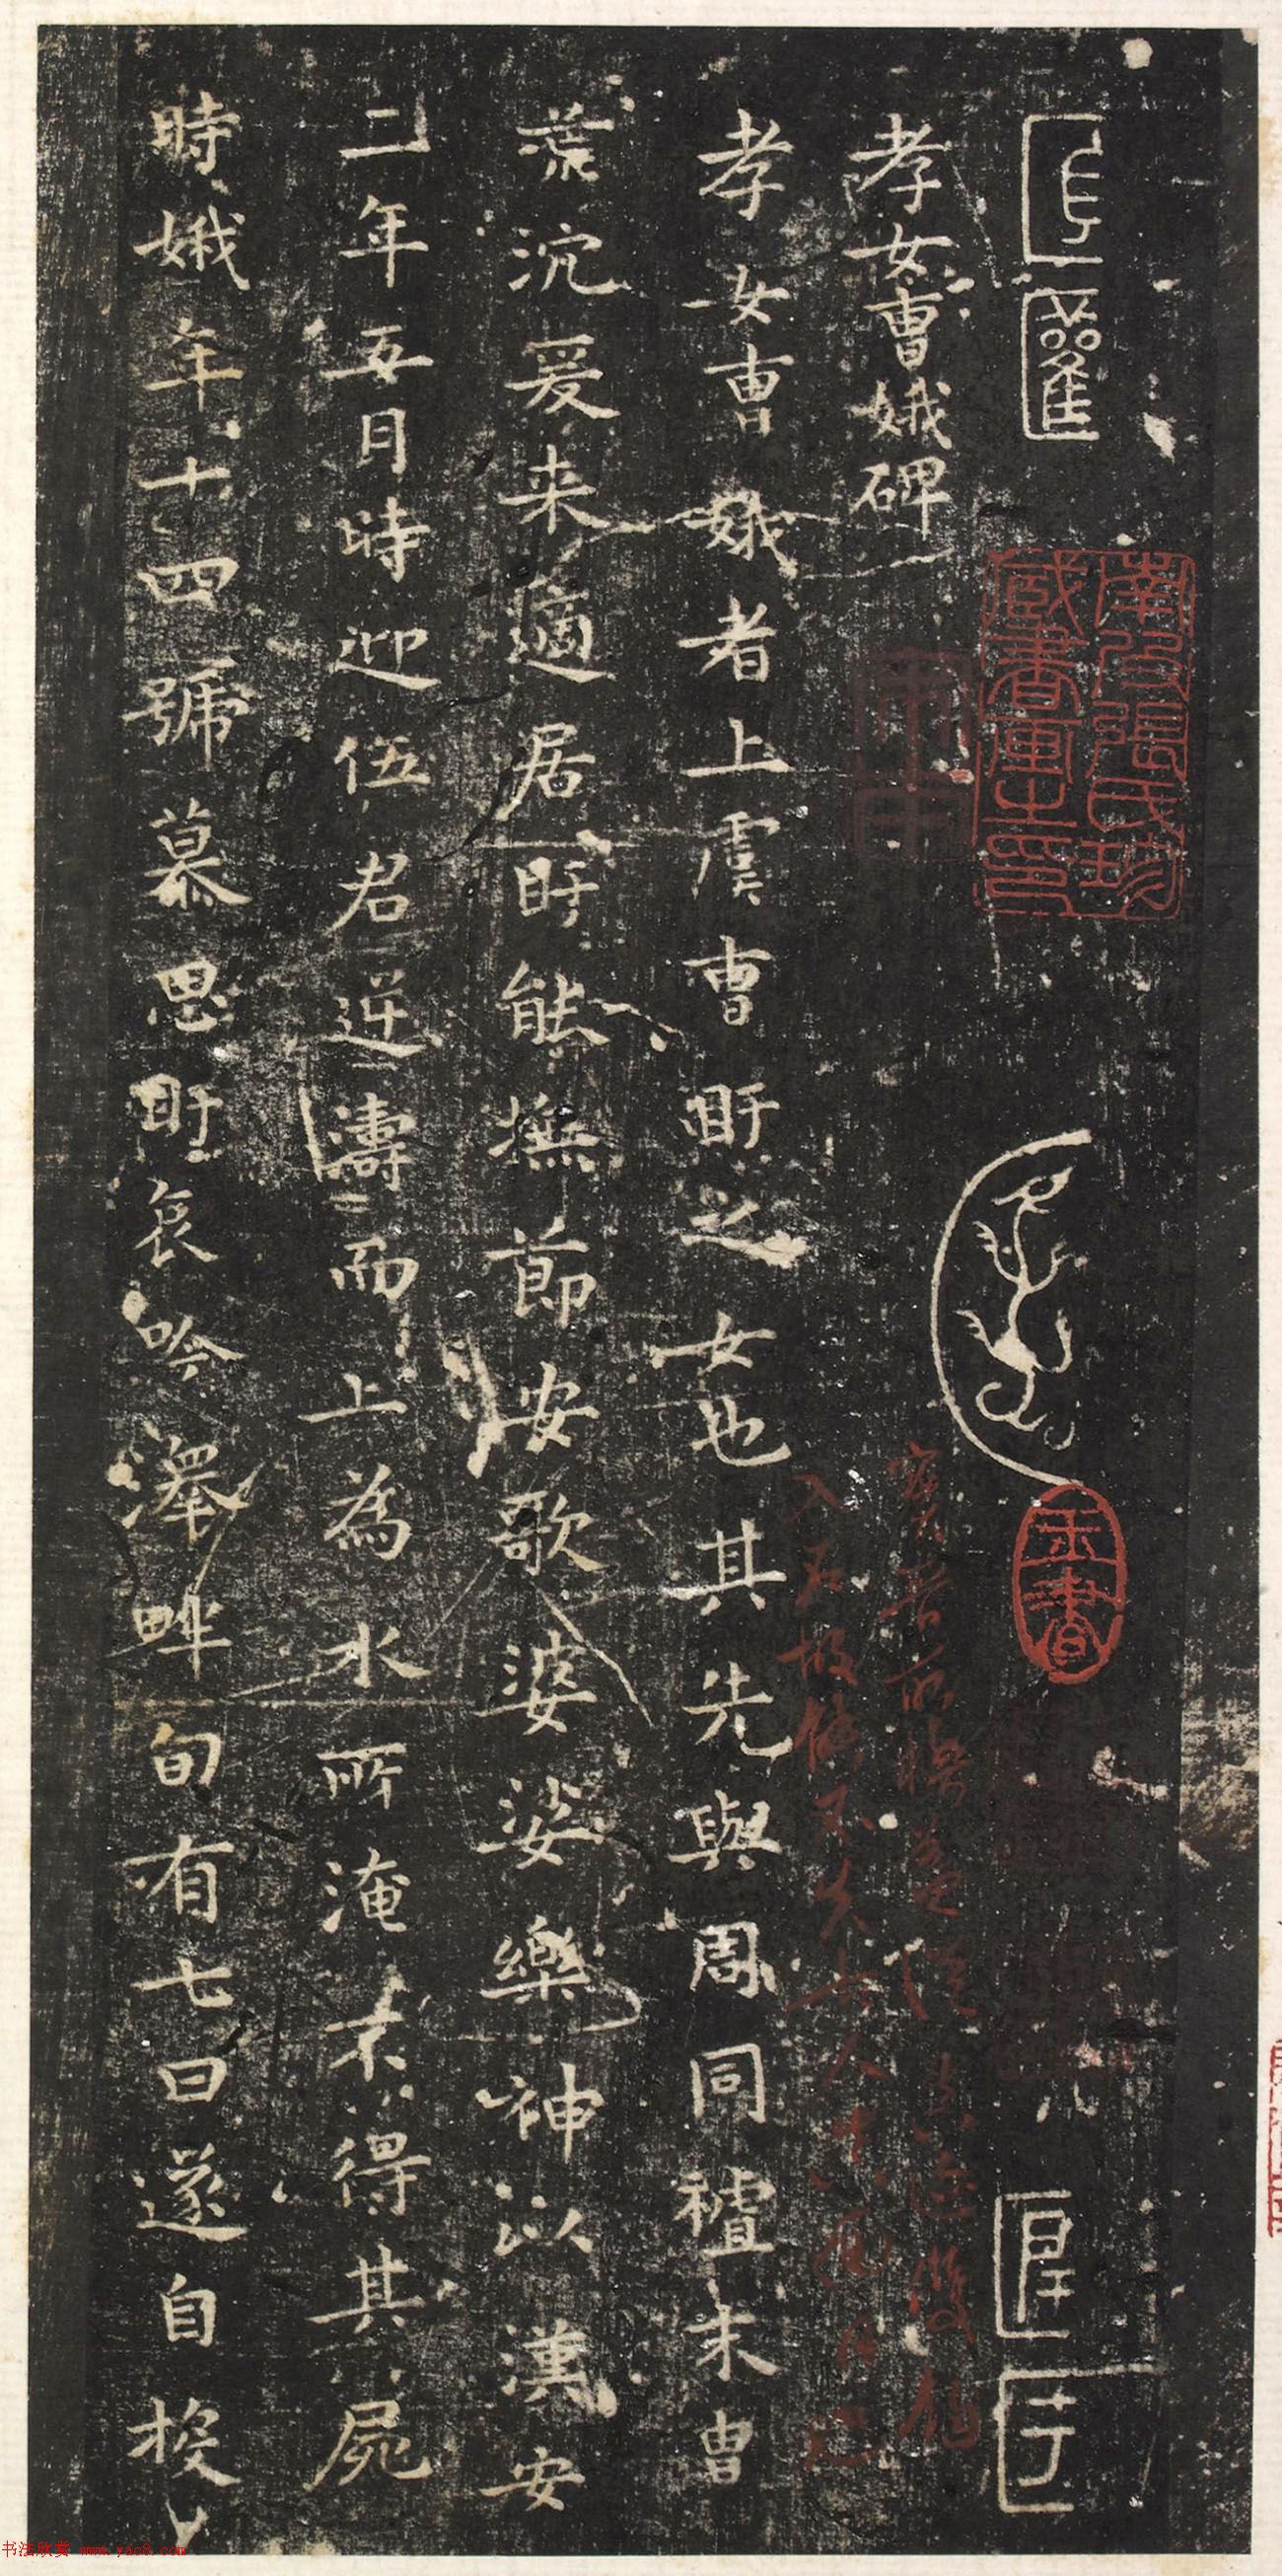 孝女曹娥碑
孝女曹娥者上虞曹盱之女也其先與周同祖末曹
荒沉爰来適居盱能撫節安歌婆娑樂神以漢安
二年五月時迎伍君逆濤而上為水所淹不得其屍
時娥年十四號慕思盱哀吟澤畔旬有七日遂自投
南陵張氏珍
藏書画之印
玉書
书法欣赏 www.yac8.com